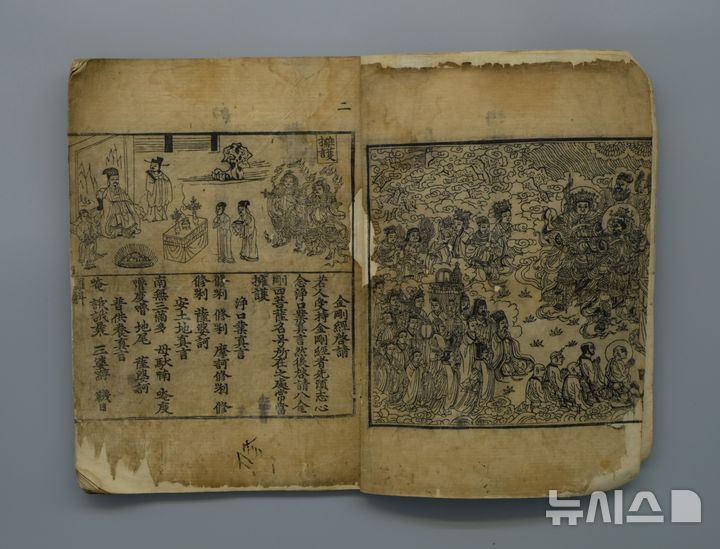 二
擁護
金剛經啓請
若人受持金剛經者先須志心
念淨口業眞言然後啓請八金
剛四菩薩名号所在之處常當
擁護
淨口業眞言
修唎 修唎 摩訶修唎 修
修唎 薩婆訶
安土地眞言
南無三滿多 母馱喃 唵度
嚕度嚕 地尾 薩婆訶
普供養眞言
唵 誐誐曩 三婆嚩 襪日
뉴시스